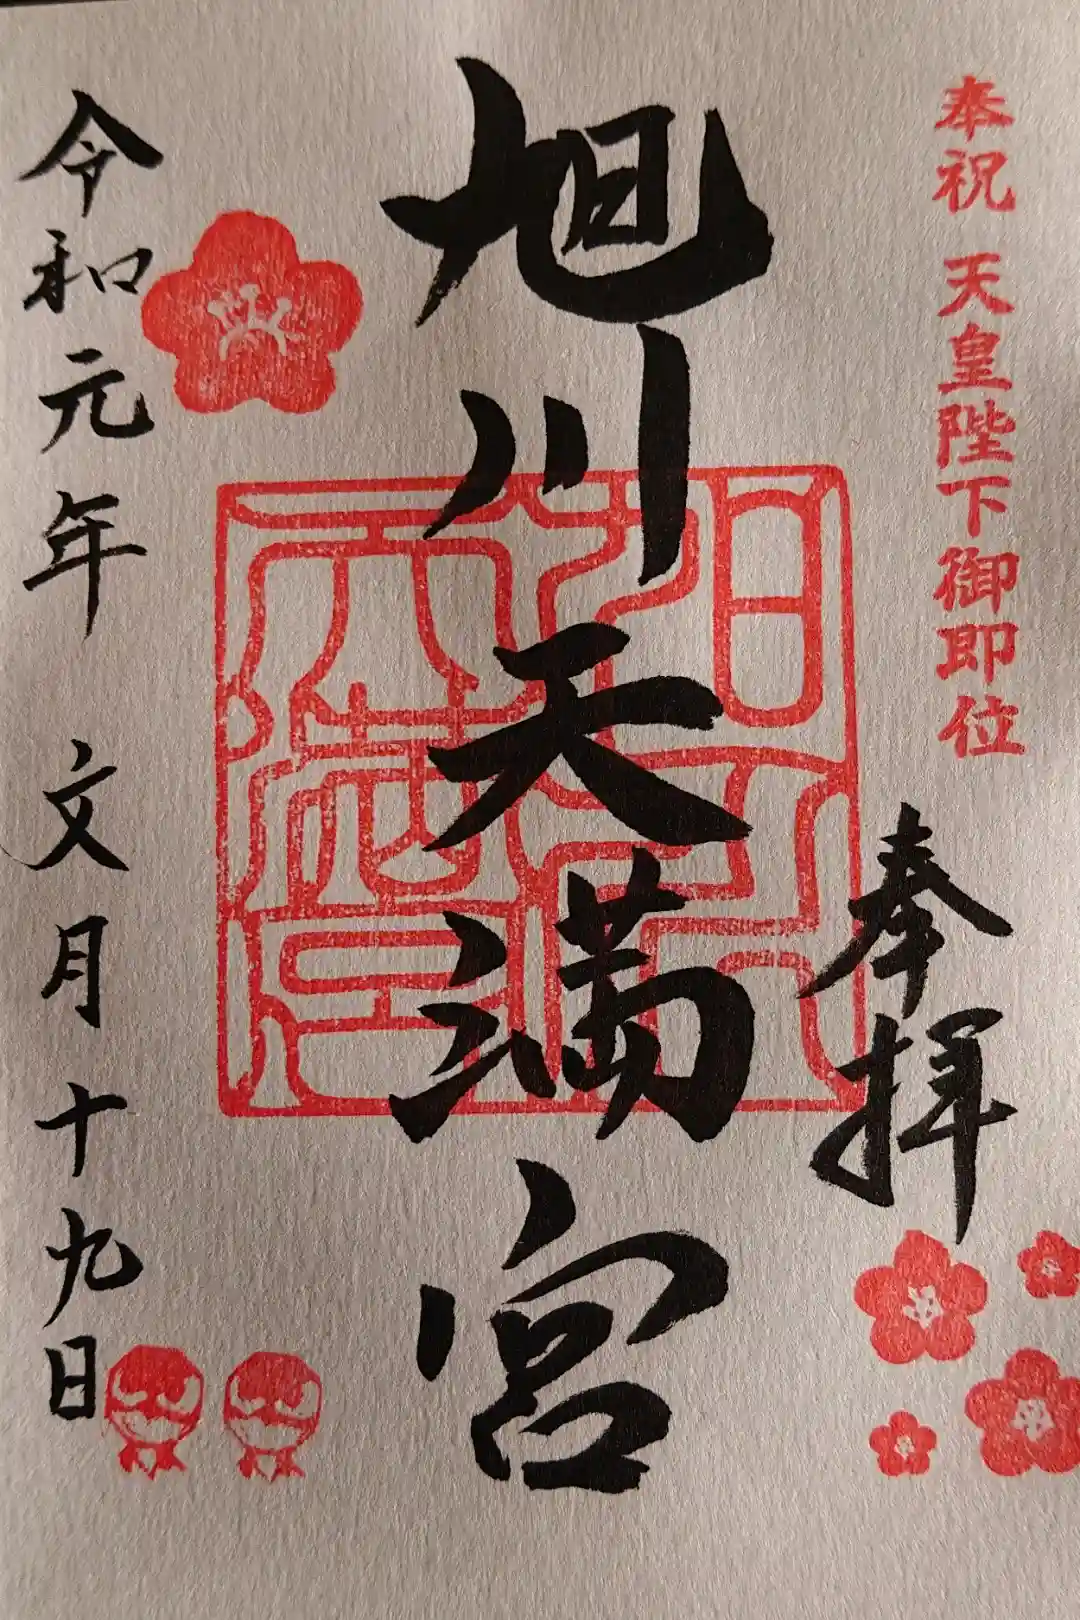 奉祝 天皇陛下御即位
奉拝
旭川天満宮
令和元年 文月十九日